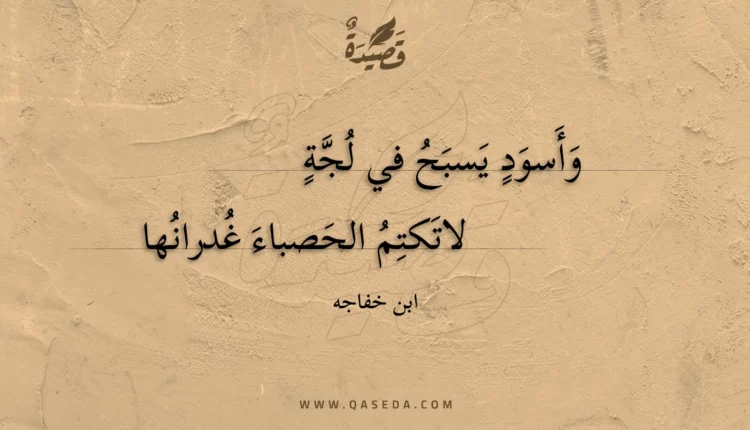 قَصِيْدَةٌ
وَأَسوَدٍ يَسبَحُ في لُجَّةٍ
لاتَكتِمُ الحَصباءَ غُدرانُها
ابن خفاجه
WWW.QASEDA.COM